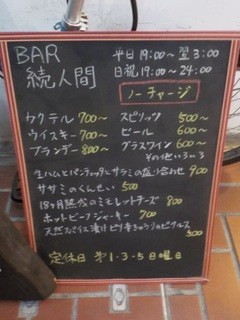 BAR
続人間
平日 19:00〜翌3:00
日祝 19:00〜24:00
ノーチャージ
カクテル 700〜
ウイスキー 700〜
ブランデー 800〜
スピリッツ 500〜
ビール 600〜
グラスワイン 600〜
その他いろいろ
生ハムとパンチェッタとサラミの盛り合わせ 900
ササミのくんせい 500
18ヶ月熟成のミモレットチーズ 800
ホットビーフジャーキー 700
天然スパイス漬け ピリ辛きゅうりのピクルス 500
定休日 第1・3・5日曜日